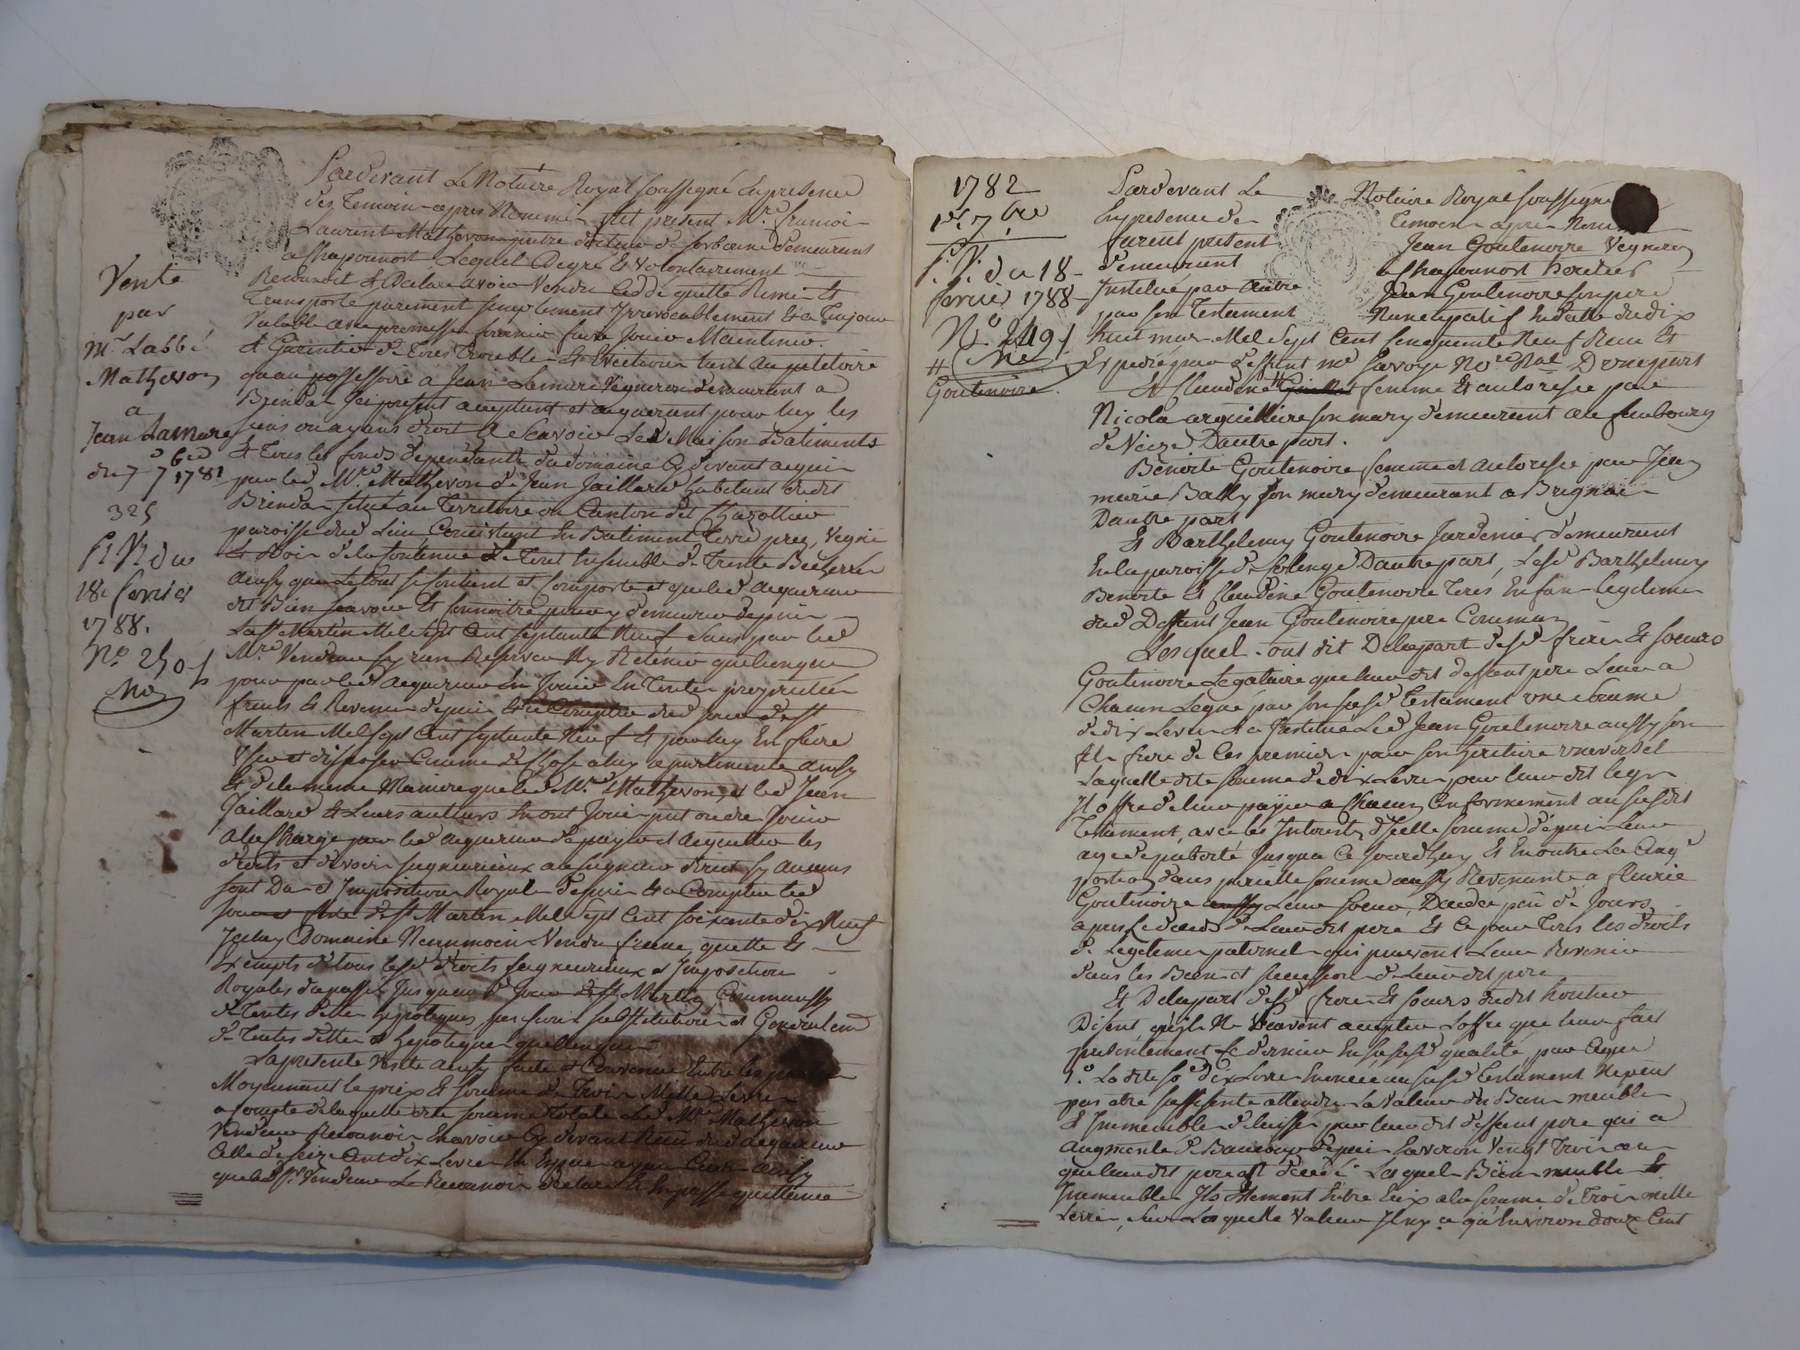 Pardevant Le Notaire Royal soussigné En presence
des Temoin apres Nommé fut present Mre francoi
Laurent Mathevon pretre docteur de sorbonne demeurant
a Chaponnost Lequel De gré & volontairement
Reconnoit & Declare avoir vendu Cedde quitte Remi &
Transporte purement simplement & irrevocablement & a Toujour
valable avec promesse fournir faire Jouir Maintenir
& Garentir de Tous Trouble & Eviction tant au petitoire
qu'au possessoire a Jean Lamure Vigneron demeurant a
Brenda Jci present acceptant et acquerant pour luy les
siens ou ayans droit A Scavoir Les Maison Batiments
& Tous les fonds dependants du domaine Cy devant acqui
par led Mre Mathevon de Jean Jaillard habitant dudt
Brenda situé au Territoire ou Canton du Chazottier
paroisse dud Lieu Consistant En Batiment Terre prez, Vigne
& Bois de la Contenue de Tout Ensemble de Trente Becherée
ainsy que Le tout se Contient et Comporte et que led acquereur
dit Bien scavoir & Connoitre pour y demeurer depui
La st Martin Mil sept Cent septante Neuf sans par led
Mre Vendeur sy rien Reserver Ny Retenir quelconque
pour par led acquereur En Jouir En Toute proprieté
fruits & Revenus depui & a Compter dud Jour de st
Martin Mil sept Cent septante Neuf & par luy En faire
User et disposer Comme de Chose a luy apartenante ainsy
& de la meme Maniere que led Mre Mathevon, et led Jean
Jaillard & Leurs auteurs En ont Joui put ou du Jouir
a la Charge par led acquereur de payer et acquitter les
droits et devoir seigneuriaux au seigneur direct sy aucuns
sont Du et Jmposition Royale depui & a Compter led
Jour et fete de st Martin Mil sept Cent soixante dix Neuf
Jceluy Domaine Neanmoin Vendu franc, quitte &
Exempts de tous lesd droits seigneuriaux et Jmposition
Royales du passé Jusqueau dt Jour de st Martin, Comm'aussy
de Toutes dettes hypoteques pensions substitution et Generalemt
de Toutes dettes et hypoteque quelconque
La presente Vente ainsy faite et Convenue Entre les parties
Moyennant le prix & somme de Troi Mille Livre
a Compte de laquelle dite somme totale Led Mre Mathevon
Vendeur Reconnoi En avoir Cy devant Recu dud acquereur
Celle de seize Cent dix Livre En Espece ayant Cour ainsy
que led sr Vendeur Le Reconnoi declare En passe quittance
Vente
par
Mr Labbé
Mathevon
a
Jean Lamure
du 7 7bre 1781
325
P. V. du
18e fevrier
1788.
No 250
Ne
1782
1er 7bre
P. V. du 18
fevrier 1788
No 249
Ne
Goutenoire
Pardevant Le Notaire Royal soussigné
En presence de Temoin apres Nommé
furent present Jean Goutenoire Vigneron
demeurant a Chaponnost heritier
Jnstitué par autre Jean Goutenoire son pere
par son Testament Nuncupatif En datte du dix
huit mar Mil Sept Cent Cinquante Neuf Recu Et
Expedié par deffunt me Savoye Nore Ral D'une part
Et Claudine femme & autorisée par
Nicola arquilliere son mary demeurant au faubourg
de Veize D'autre part.
Benoite Goutenoire femme et autorisée par Jean
marie Bally son mary demeurant a Brignai
D'autre part
Et Barthelemy Goutenoire Jardinier demeurant
En la paroisse de D'autre part, Lesd Barthelemy
Benoite Et Claudine Goutenoire Tous Enfan Legitime
dud Deffunt Jean Goutenoire pere Commun
Lesquel ont dit De la part desd frere Et soeurs
Goutenoire Legataire que leur dit deffunt pere Leur a
Chacun Legué par son susd Testament une somme
de dix Livre Et a Jnstitué Led Jean Goutenoire aussy son
fils frere de Ces premier pour son heritier universel
Laquelle dite somme de dix Livre pour leur dit legs
Jl offre de leur payer a Chacun Conformement au susdit
Testament, avec les Jnterets d'Jcelle somme depui Leur
age de puberté Jusqu'a Ce Jourd'huy Et En outre La
portion dans pareille somme aussy Revenante a fleurie
Goutenoire Leur soeur, Decedée peu de Jours
apres Le deced de Leur dit pere Et Ce pour Tous les droits
de Legitime paternel qui peuvent Leur Revenir
dans les Bien et succession de Leur dit pere
Et De la part desd frere Et soeurs dudit heritier
Disent qu'ils Ne peuvent accepter L'offre que leur fait
presentement Ce dernier En sa susd qualité, par Ceque
1o La dite so de dix Livre Enoncée au susd Testament Ne peut
pas etre suffisante attendu La Valeur des Bien meuble
Et Jmmeuble delaissé par leur dit deffunt pere qui a
augmenté de Beaucoup depui Environ Vingt Troi an
que leur dit pere est decedé Lesquel Bien meuble Et
Jmmeuble Jls Estiment Entre Eux a la somme de Troi mille
Livre, sur Laquelle Valeur Jl ny a qu'Environ douze Cent